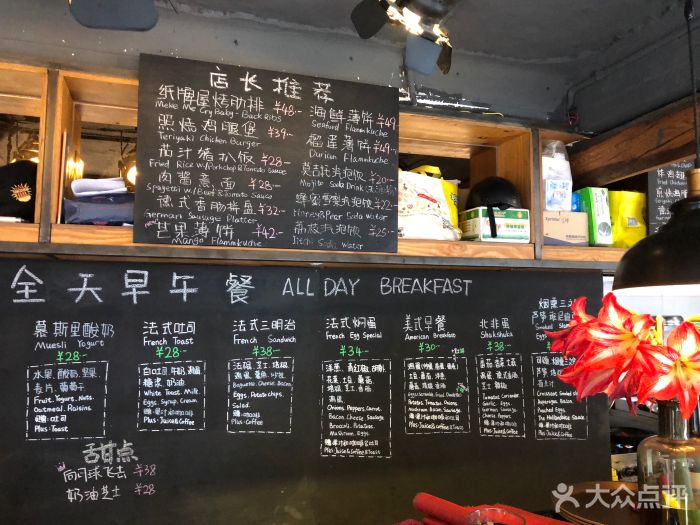 店长推荐
纸牌屋烤肋排 ¥48-
Make Me Cry Baby-Back Ribs
照烧鸡腿堡 ¥39-
Teriyaki Chicken Burger
茄汁猪扒饭 ¥28-
Fried Rice w/Porkchop & Tomato Sauce
肉酱意面 ¥28-
Spagetti w/Beef & Tomato Sauce
德式香肠拼盘 ¥32-
German Sausage Platter
芒果薄饼 ¥42-
Mango Flammkuche
海鲜薄饼 ¥49
Seafood Flammkuche
榴莲薄饼 ¥49-
Durian Flammkuche
莫吉托 ¥20-
Mojito Soda Drink
蜂蜜雪梨 ¥22-
Honey & Pear Soda Water
荔枝 ¥25-
Litchi Soda Water
炸鸡翅
Fried Chicken
全天早午餐 ALL DAY BREAKFAST
慕斯里酸奶
Muesli Yogurt
¥28-
水果,酸奶,坚果
麦片,葡萄干
Fruit. Yogurt. Nuts
Oatmeal. Raisins
赠:吐司
Plus:Toast
法式吐司
French Toast
¥28-
白吐司,牛奶,鸡蛋
糖浆 奶油
White Toast. Milk.
Eggs. Syrup. Cream
赠:果汁/咖啡
Plus:Juice&Coffee
法式三明治
French Sandwich
¥38-
Baguette. Cheese. Bacon
Eggs. Potato chips.
Salad.
赠:果汁/咖啡
Plus:Juice&Coffee
法式焖蛋
French Egg Special
¥34-
洋葱,青红椒,胡萝卜
Onions. Peppers. Carrot.
Bacon. Cheese. Sausage
Broccoli. Potatoes.
Mushroom. Eggs
赠:果汁/咖啡/吐司
Plus:Juice&Coffee&Toast
美式早餐
American Breakfast
¥30-
Potatoes. Tomatoes. Beans
Mushroom. Bacon. Sausage
赠:果汁/咖啡/吐司
Plus:Juice&Coffee&Toast
北非蛋
Shakshuka
¥38-
Tomatoes. Coriander
Garlic. Eggs
German Sausage
赠:果汁/咖啡
Plus:Juice&Coffee
烟熏三文
Croissant. Smoked
Asparagus. Bacon
Poached Egg
w. Hollandaise Sauce
赠:果汁/咖啡
Plus:Juice&Coffee
甜点
向月球飞去 ¥38
奶油芝士 ¥28
大众点评